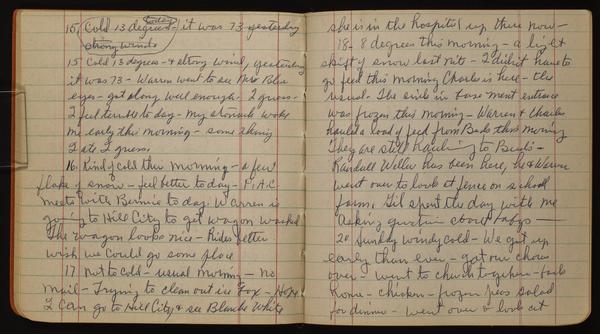 15, Cold 13 degrees today - it was 73 yesterday
strong winds
15 Cold 13 degrees - + strong wind, yesterday
it was 73 - Warren went to see Mrs
eyes - got along well enough - I guess -
I feel terrible to day - my stomach woke
me early this morning - some thing
I ate I guess.
16. Kind of cold this morning - a few
flakes of snow - feel better to day - P.I.A.C.
meets with Bernie to day. Warren is
going to Hill City to get wagon washed
The wagon looks nice - Rides better
wish we could go some place
17 not to cold - usual morning - no
mail - Trying to clean out ice box - Hope
I can go to Hill City & see Blanche White
she is in the hospital up there now -
18 - 8 degrees this morning - a light
skift of snow last nite - I didn't have to
go feed this morning Charles is here - the
usual - The sink in base ment entrance
was frozen this morning - Warren & Charles
hauled a load of feed from Beds this morning
They are still hauling to
Randall Weller has been here, he & Warren
went over to look at fence on school
farm. Gil spent the day with me
asking question about baby -
20 Sunday windy cold - We got up
early than ever - got our chores
over - went to church together - back
home - chicken - frozen peas salad
for dinner - went over & look at